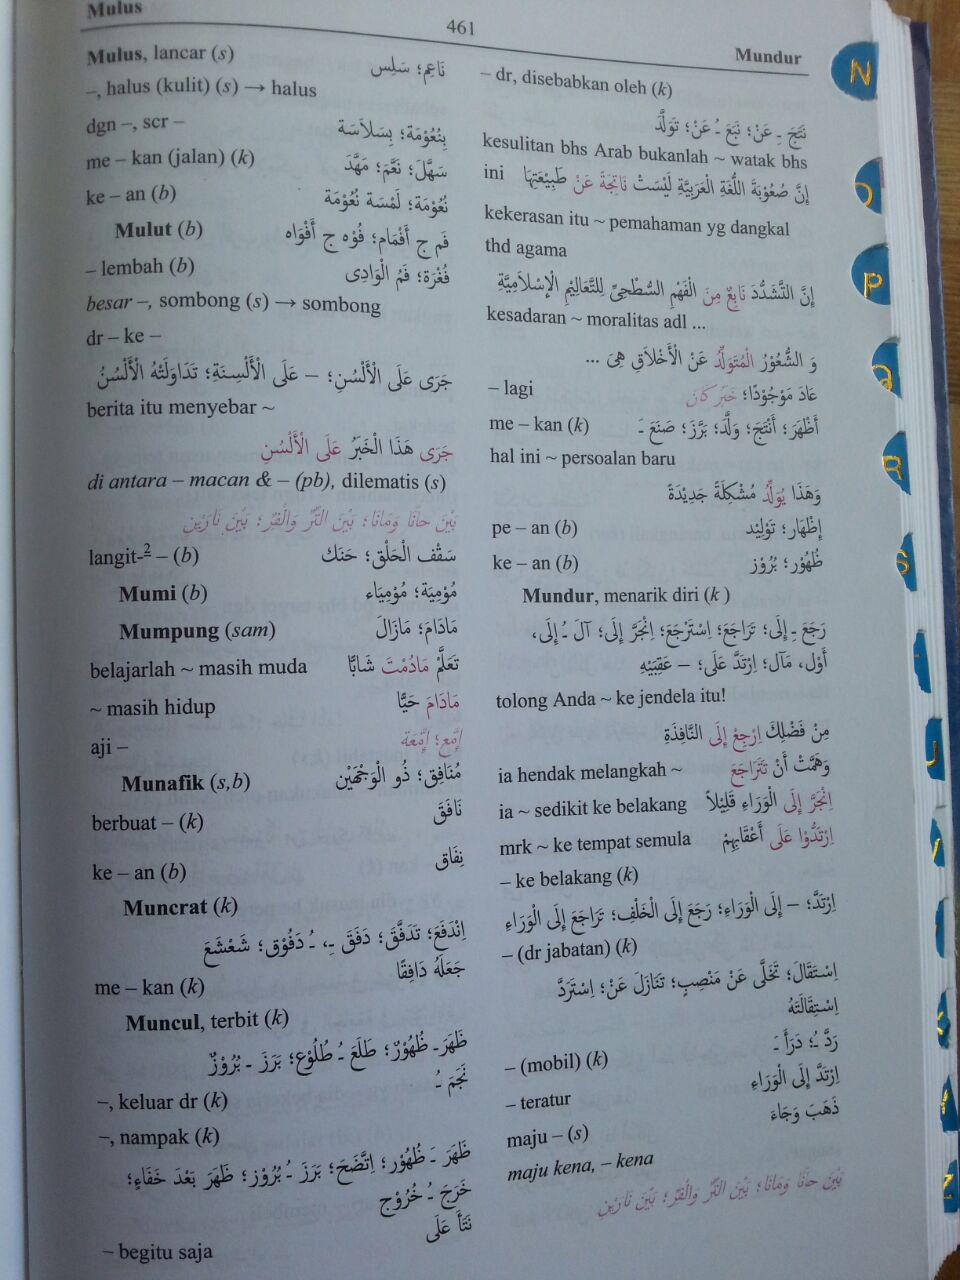 Mulus
461
Mundur
Mulus, lancar (s) نَاعِم؛ سَلِس
–, halus (kulit) (s) → halus
dgn –, scr – بِنُعُوْمَة؛ بِسَلاَسَة
me – kan (jalan) (k) سَهَّلَ؛ نَعَّمَ؛ مَهَّدَ
ke – an (b) نُعُوْمَة؛ لَمْسَة نُعُوْمَة
Mulut (b) فَم ج أَفْمَام؛ فُوْه ج أَفْوَاه
– lembah (b) فُغْرَة؛ فَمُ الْوَادِى
besar –, sombong (s) → sombong
dr – ke –
جَرَى عَلَى الْأَلْسُنِ؛ – عَلَى الْأَلْسِنَةِ؛ تَدَاوَلَتْهُ الْأَلْسُنُ
berita itu menyebar ~
جَرَى هَذَا الْخَبَرُ عَلَى الْأَلْسُنِ
di antara – macan & – (pb), dilematis (s)
بَيْنَ حَانَا وَمَانَا؛ بَيْنَ الْتَرِّ وَالْقَرِّ؛ بَيْنَ نَارَيْنِ
langit-² – (b) سَقْف الْحَلْق؛ حَنَك
Mumi (b) مُوْمِيَة؛ مُوْمِيَاء
Mumpung (sam) مَادَامَ؛ مَازَالَ
belajarlah ~ masih muda تَعَلَّمْ مَادُمْتَ شَابًّا
~ masih hidup مَادَامَ حَيًّا
aji – إِمَّع؛ إِمَّعَة
Munafik (s,b) مُنَافِق؛ ذُو الْوَجْهَيْن
berbuat – (k) نَافَقَ
ke – an (b) نِفَاق
Muncrat (k)
اِنْدَفَعَ؛ تَدَفَّقَ؛ دَفَقَ ـِ، ـُ دَفُوْق؛ شَعْشَعَ
me – kan (k) جَعَلَهُ دَافِقًا
Muncul, terbit (k)
ظَهَرَ ـَ ظُهُوْرٌ؛ طَلَعَ ـُ طُلُوْع؛ بَرَزَ ـُ بُرُوْزٌ
–, keluar dr (k) نَجَمَ ـُ
–, nampak (k)
ظَهَرَ ـَ ظُهُوْر؛ اِتَّضَحَ؛ بَرَزَ ـُ بُرُوْز؛ ظَهَرَ بَعْدَ خَفَاءٍ؛
خَرَجَ ـُ خُرُوْج
نَتَأَ عَلَى
– begitu saja
– dr, disebabkan oleh (k)
نَتَجَ ـِ عَنْ؛ نَبَعَ ـُ عَنْ؛ تَوَلَّدَ
kesulitan bhs Arab bukanlah ~ watak bhs
ini إِنَّ صُعُوْبَةَ اللُّغَةِ الْعَرَبِيَّةِ لَيْسَتْ نَاتِجَةً عَنْ طَبِيْعَتِهَا
kekerasan itu ~ pemahaman yg dangkal
thd agama
إِنَّ التَّشَدُّدَ نَابِعٌ مِنَ الْفَهْمِ السُّطْحِيِّ لِلتَّعَالِيْمِ الْإِسْلاَمِيَّةِ
kesadaran ~ moralitas adl ...
وَ الشُّعُوْرُ الْمُتَوَلِّدُ عَنْ الْأَخْلاَقِ هِىَ ...
– lagi عَادَ مَوْجُوْدًا؛ خَبَرُ كَانَ
me – kan (k) أَظْهَرَ؛ أَنْتَجَ؛ وَلَّدَ؛ بَرَّزَ؛ صَنَعَ ـَ
hal ini ~ persoalan baru
وَهَذَا يُوَلِّدُ مُشْكِلَةً جَدِيْدَةً
pe – an (b) إِظْهَار؛ تَوْلِيْد
ke – an (b) ظُهُوْر؛ بُرُوْز
Mundur, menarik diri (k)
رَجَعَ ـِ إِلَى؛ تَرَاجَعَ؛ اِسْتَرْجَعَ؛ اِنْجَرَّ إِلَى؛ آلَ ـُ إِلَى،
أَوْل، مَآل؛ اِرْتَدَّ عَلَى؛ – عَقِبَيْهِ
tolong Anda ~ ke jendela itu!
مِنْ فَضْلِكَ اِرْجِعْ إِلَى النَّافِذَةِ
ia hendak melangkah ~ وَهَمَّتْ أَنْ تَتَرَاجَعَ
ia ~ sedikit ke belakang اِنْجَرَّ إِلَى الْوَرَاءِ قَلِيْلاً
mrk ~ ke tempat semula اِرْتَدُّوْا عَلَى أَعْقَابِهِمْ
– ke belakang (k)
اِرْتَدَّ؛ – إِلَى الْوَرَاءِ؛ رَجَعَ إِلَى الْخَلْفِ؛ تَرَاجَعَ إِلَى الْوَرَاءِ
– (dr jabatan) (k)
اِسْتَقَالَ؛ تَخَلَّى عَنْ مَنْصِبٍ؛ تَنَازَلَ عَنْ؛ اِسْتَرَدَّ
اِسْتِقَالَتَهُ
– (mobil) (k) رَدَّ ـُ؛ دَرَأَ ـَ
– teratur اِرْتَدَّ إِلَى الْوَرَاءِ
maju – (s) ذَهَبَ وَجَاءَ
maju kena, – kena
بَيْنَ حَانَا وَمَانَا؛ بَيْنَ الْتَرِّ وَالْقَرِّ؛ بَيْنَ نَارَيْنِ
N
O
P
Q
R
S
U
Z